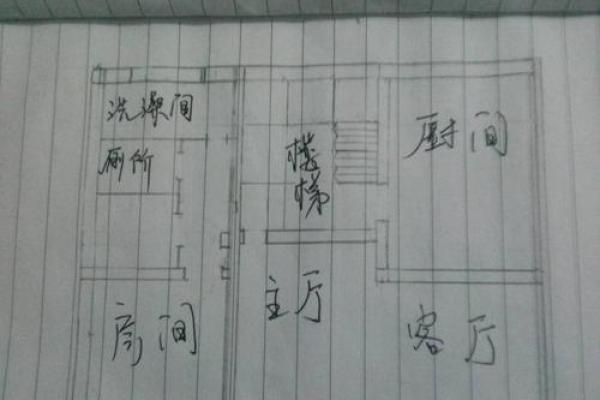 洗澡间
厕所
楼梯
厨间
房间
主厅
客厅